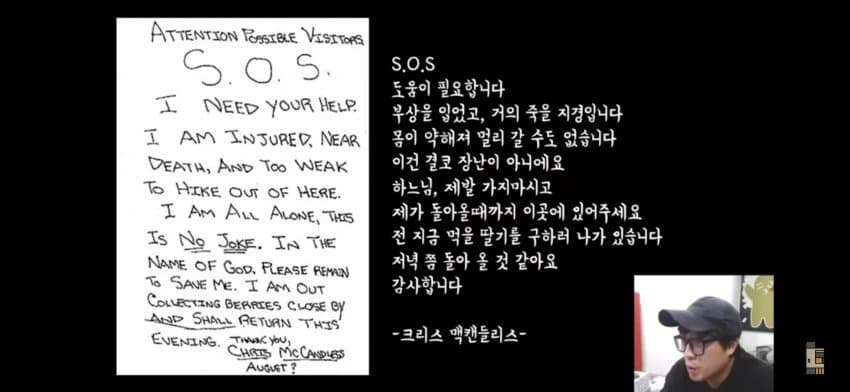 ATTENTION POSSIBLE VISITORS
S.O.S.
I NEED YOUR HELP.
I AM INJURED, NEAR
DEATH, AND TOO WEAK
TO HIKE OUT OF HERE.
I AM ALL ALONE, THIS
IS NO JOKE. IN THE
NAME OF GOD, PLEASE REMAIN
TO SAVE ME. I AM OUT
COLLECTING BERRIES CLOSE BY
AND SHALL RETURN THIS
EVENING. THANK YOU,
CHRIS McCANDLESS
AUGUST?
S.O.S
도움이 필요합니다
부상을 입었고, 거의 죽을 지경입니다
몸이 약해져 멀리 갈 수도 없습니다
이건 결코 장난이 아니에요
하느님, 제발 가지마시고
제가 돌아올때까지 이곳에 있어주세요
전 지금 먹을 딸기를 구하러 나가 있습니다
저녁 쯤 돌아 올 것 같아요
감사합니다
-크리스 맥캔들리스-